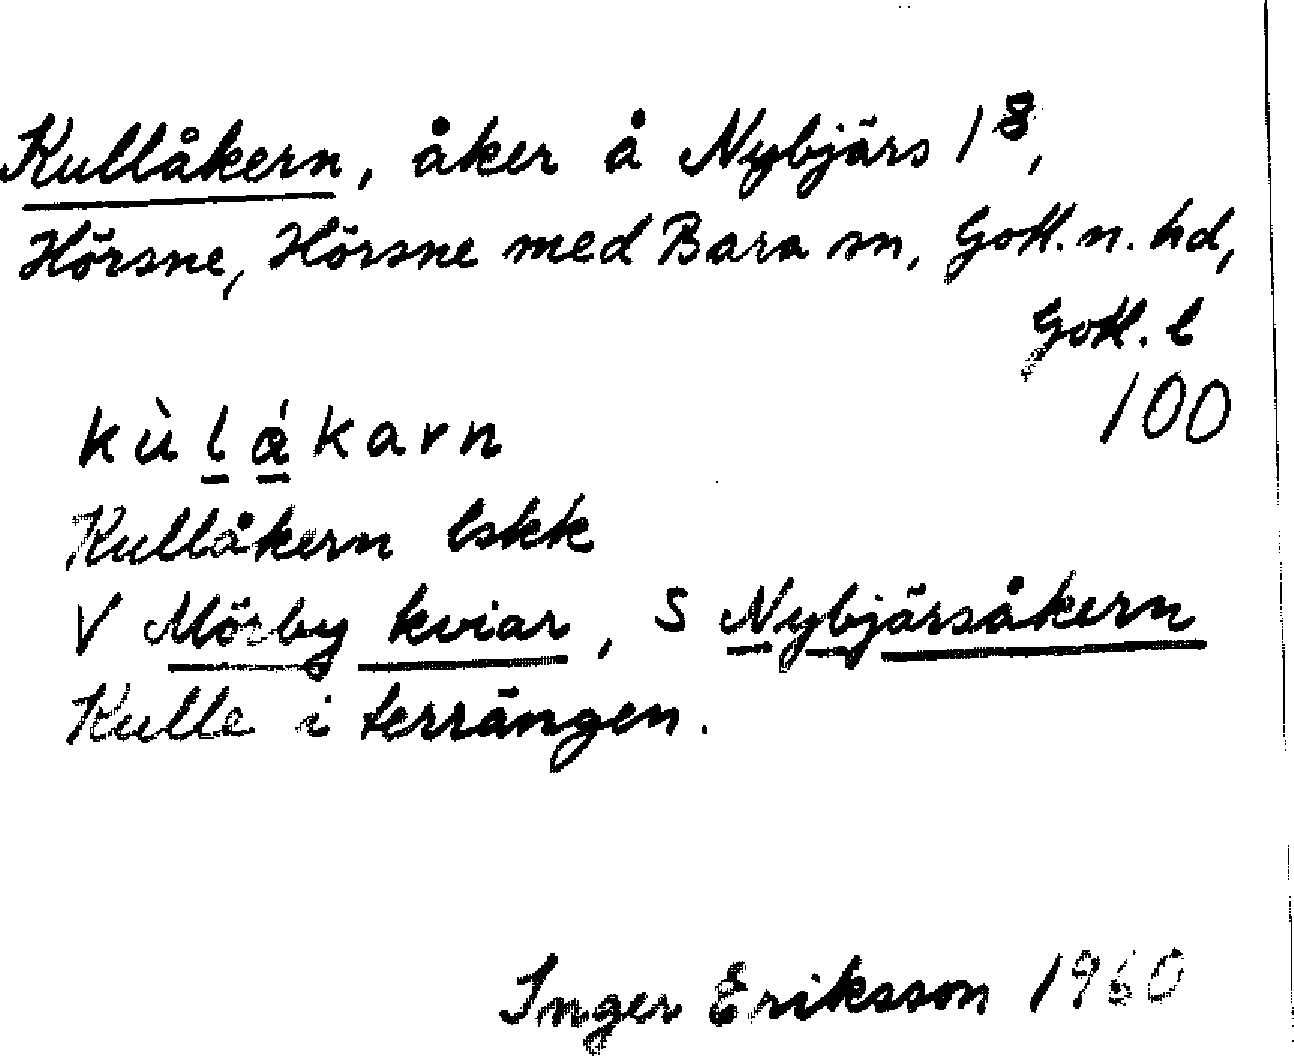 Kullåkern, åker å Nybjärs 1⁸,
Hörsne, Hörsne med Bara sn, Gotl. n. hd,
Gotl. l
100
kùl̲á̲karn
Kullåkern lskk
V Mörby kviar, S Nybjärsåkern
Kulle i terrängen.
Inger Eriksson 1960